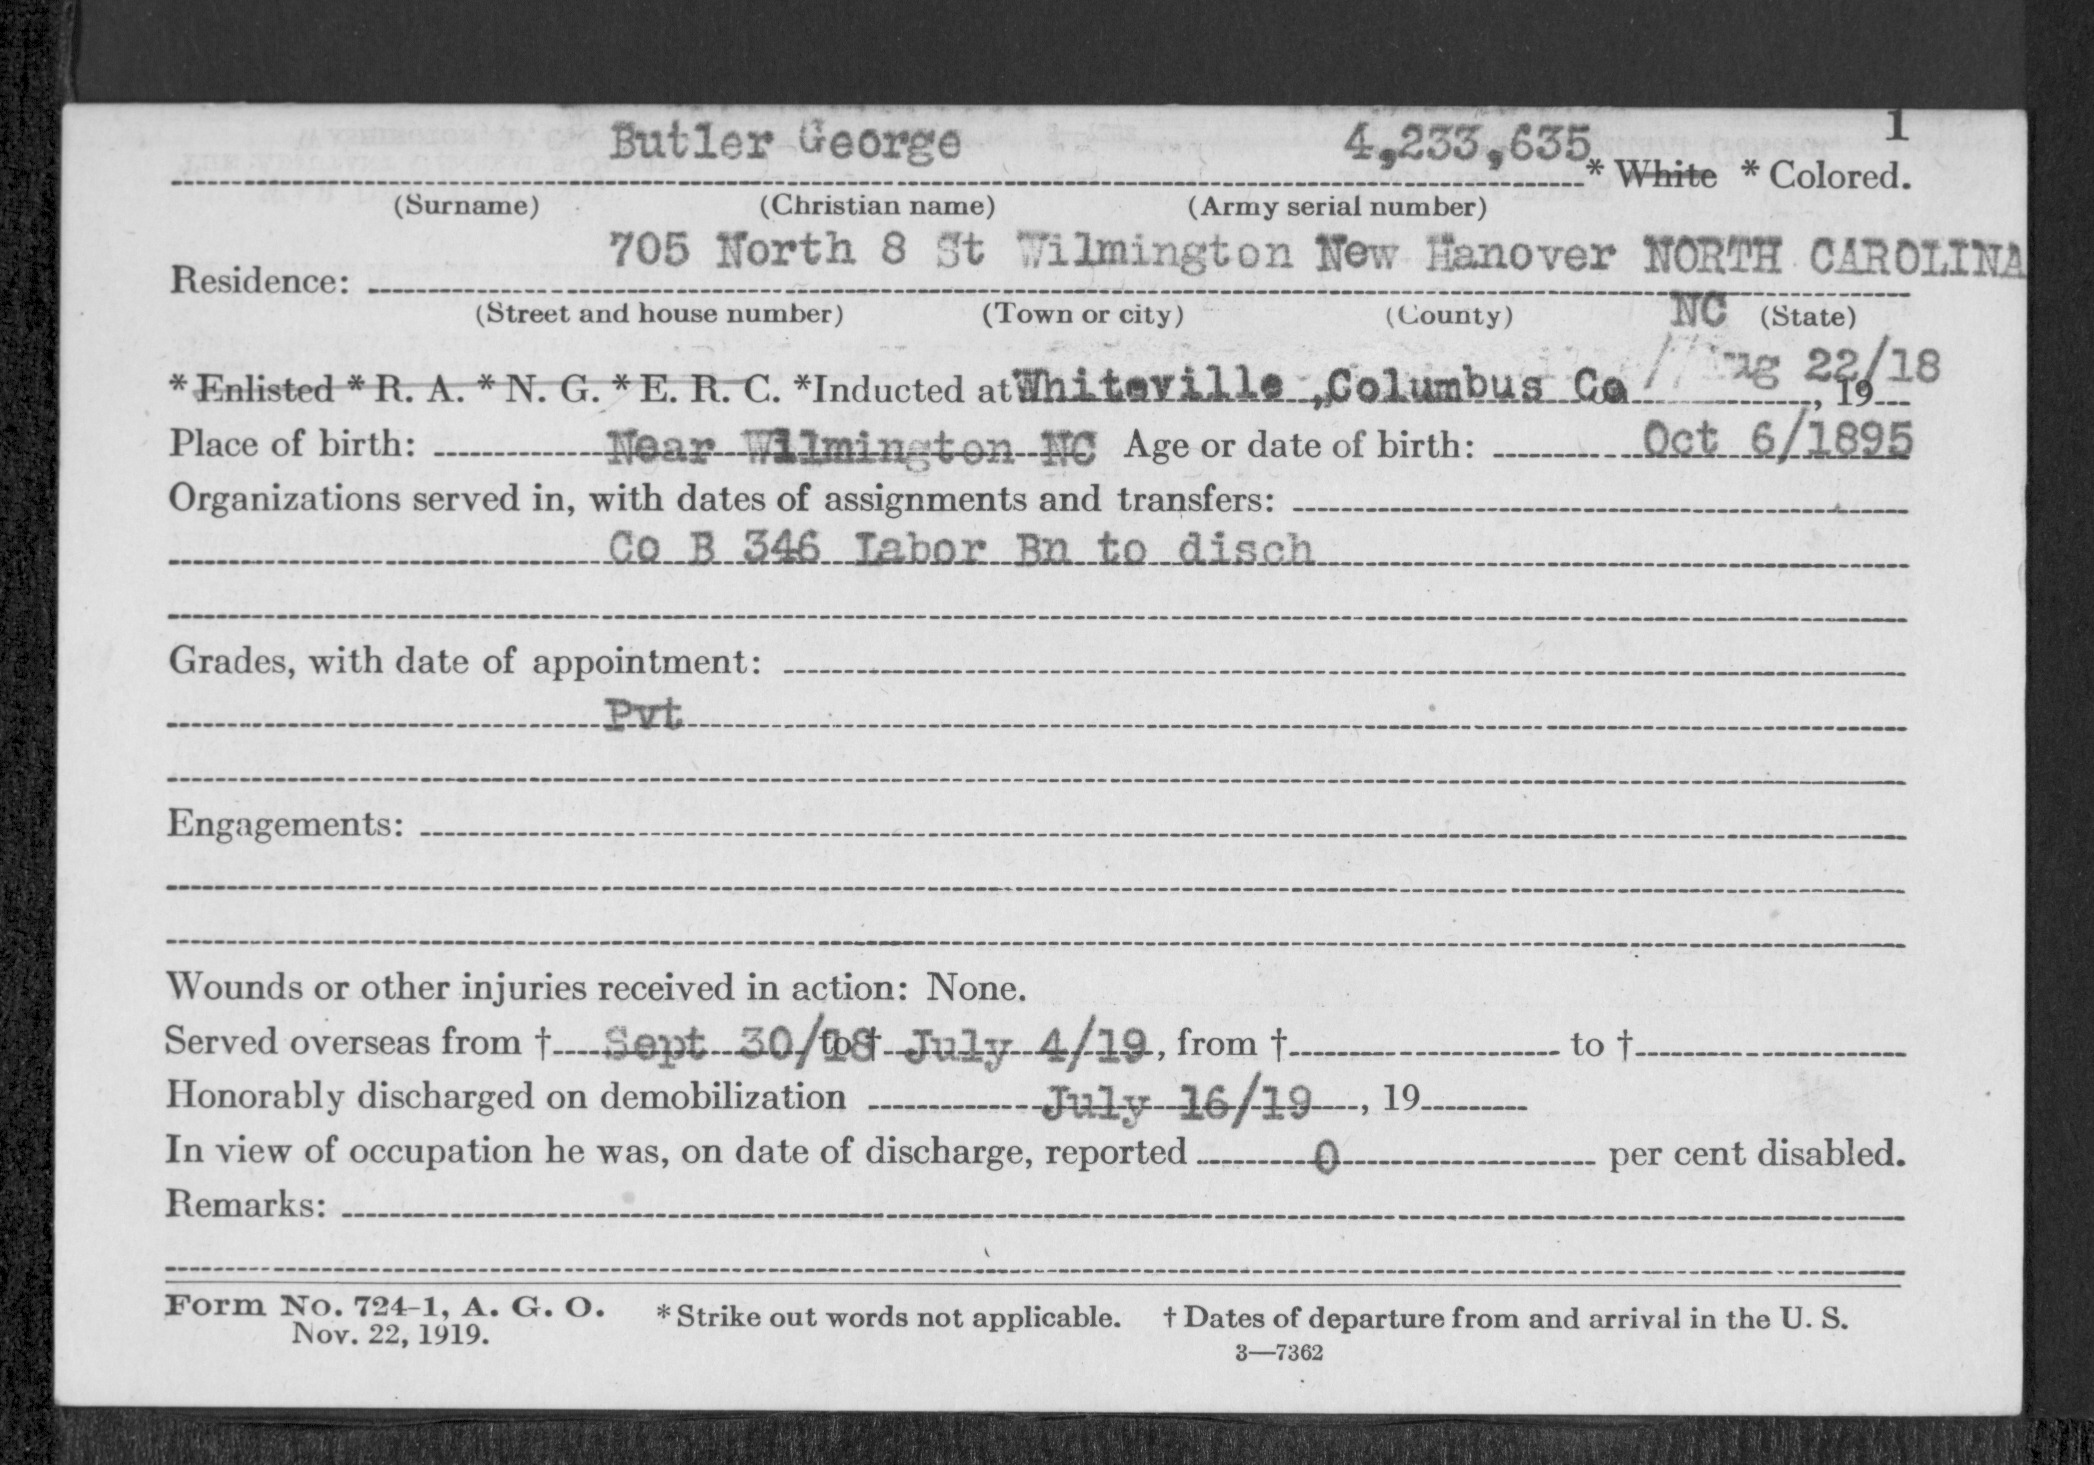 1
Butler George 4,233,635 * White * Colored.
(Surname) (Christian name) (Army serial number)
705 North 8 St Wilmington New Hanover NORTH CAROLINA
Residence:
(Street and house number) (Town or city) (County) NC (State)
* Enlisted * R. A. * N. G. * E. R. C. *Inducted at Whiteville ,Columbus Co Aug 22/18 , 19
Place of birth: Near Wilmington NC Age or date of birth: Oct 6/1895
Organizations served in, with dates of assignments and transfers:
Co B 346 Labor Bn to disch
Grades, with date of appointment:
Pvt
Engagements:
Wounds or other injuries received in action: None.
Served overseas from † Sept 30/18 to † July 4/19, from † to †
Honorably discharged on demobilization July 16/19 , 19
In view of occupation he was, on date of discharge, reported 0 per cent disabled.
Remarks:
Form No. 724-1, A. G. O. * Strike out words not applicable. † Dates of departure from and arrival in the U. S.
Nov. 22, 1919.
3—7362